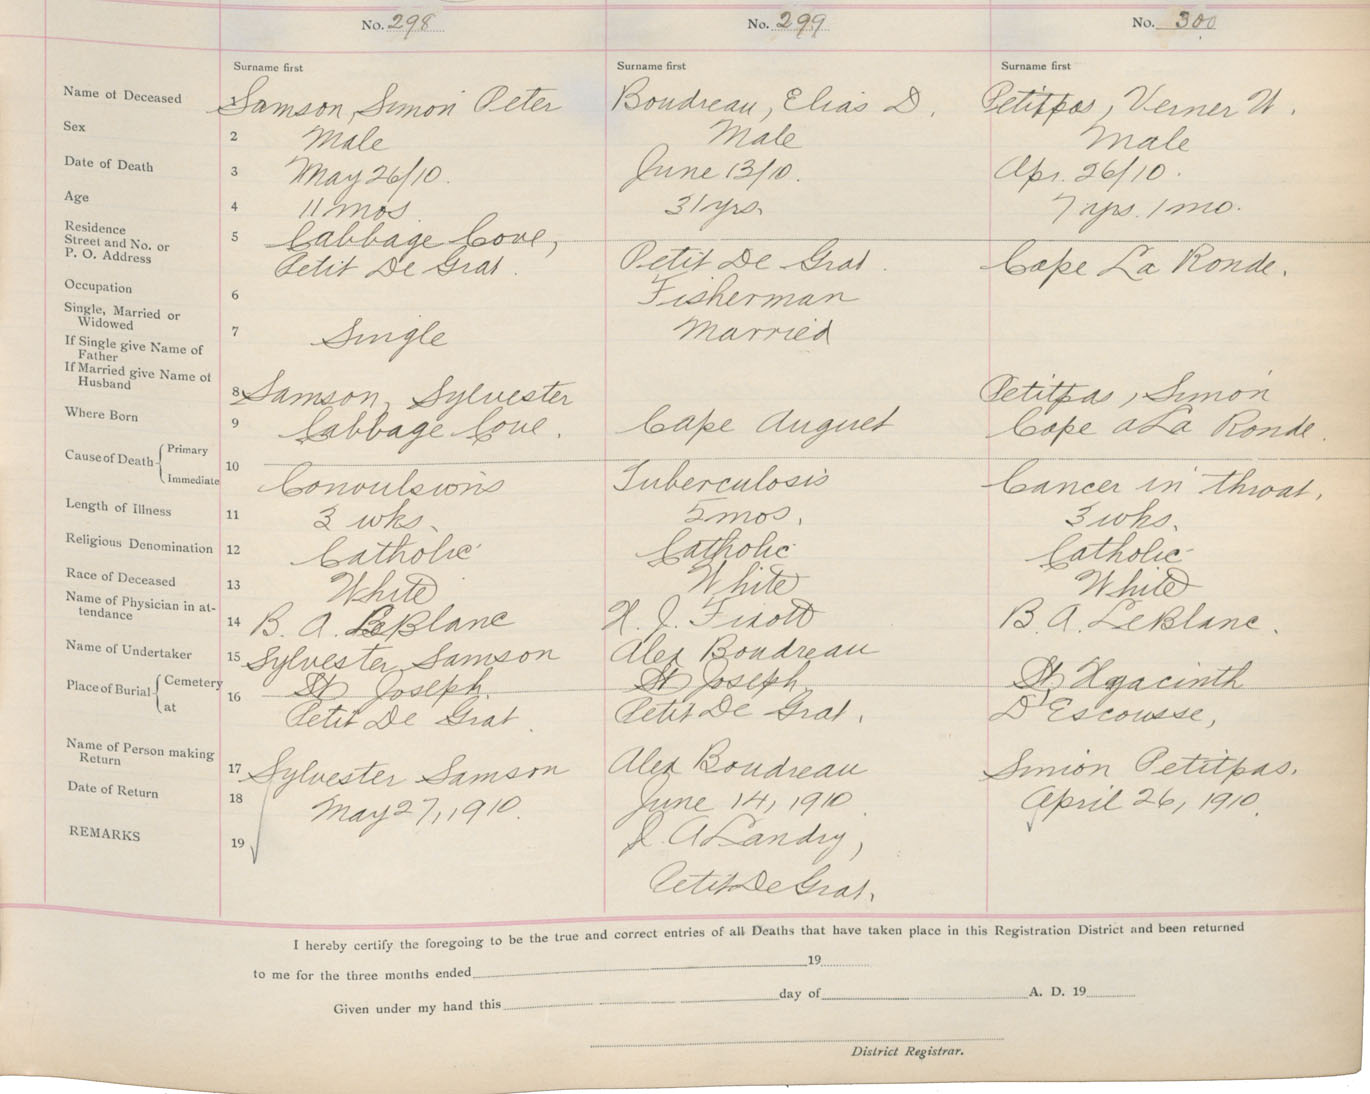 No. 298 No. 299 No. 300
Surname first Surname first Surname first
Name of Deceased 1 Samson, Simon Peter Boudreau, Elias D. Petitpas, Verner W.
Sex 2 Male Male Male
Date of Death 3 May 26/10. June 13/10. Apr. 26/10.
Age 4 11 mos. 31 yrs. 7 yrs. 1 mo.
Residence
Street and No. or 5 Cabbage Cove,
P. O. Address Petit De Grat. Petit De Grat. Cape La Ronde.
Occupation 6 Fisherman
Single, Married or
Widowed 7 Single Married
If Single give Name of
Father
If Married give Name of
Husband 8 Samson, Sylvester Petitpas, Simon
Where Born 9 Cabbage Cove. Cape August Cape a La Ronde.
Cause of Death Primary
Immediate 10 Convulsions Tuberculosis Cancer in throat.
Length of Illness 11 3 wks. 5 mos. 3 wks.
Religious Denomination 12 Catholic Catholic Catholic
Race of Deceased 13 White White White
Name of Physician in at-
tendance 14 B. A. LeBlanc H. J. B. A. LeBlanc.
Name of Undertaker 15 Sylvester Samson Alex Boudreau
Place of Burial Cemetery St Joseph. St Joseph. St Hyacinth
at 16 Petit De Grat Petit De Grat. D'Escousse,
Name of Person making
Return 17 Sylvester Samson Alex Boudreau Simon Petitpas.
Date of Return 18 May 27, 1910. June 14, 1910 April 26, 1910.
REMARKS 19 J. A Landry,
Petit De Grat.
I hereby certify the foregoing to be the true and correct entries of all Deaths that have taken place in this Registration District and been returned
to me for the three months ended 19
Given under my hand this day of A. D. 19
District Registrar.